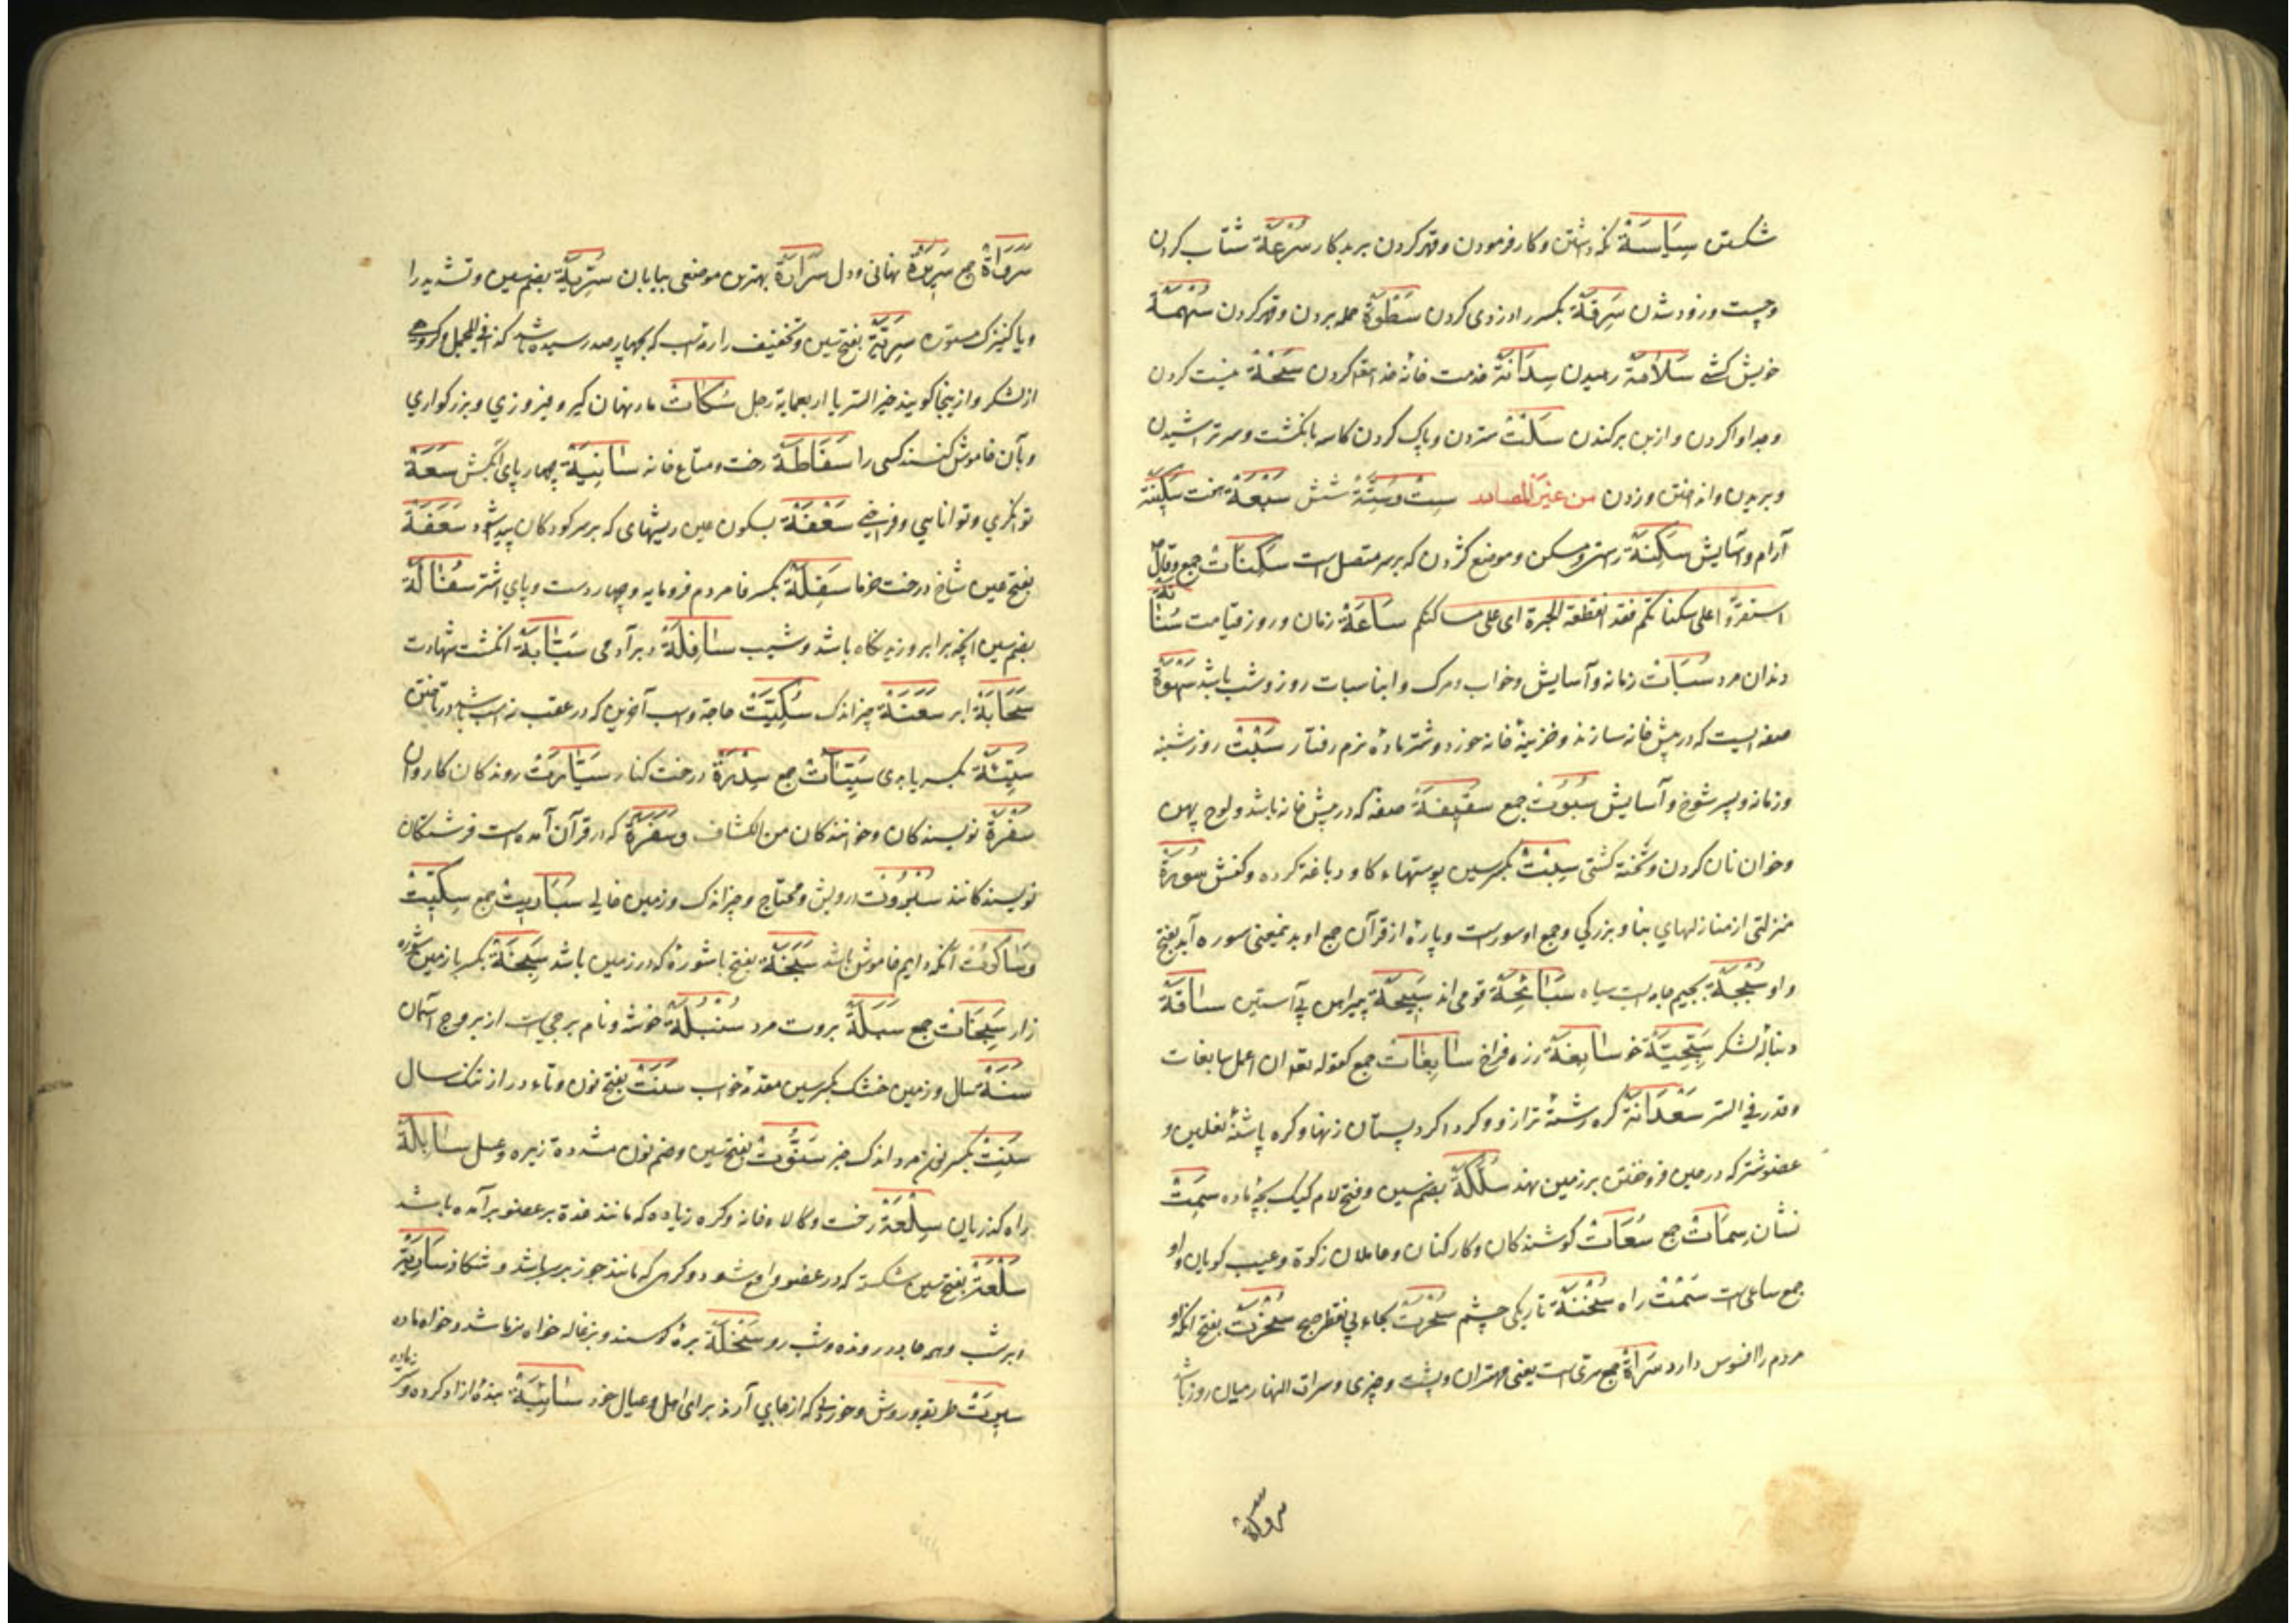 شکستن سِیَاسَةْ نکه داشتن و کار فرمودن و قهر کردن بر بدکار سُرْعَةْ شتاب کردن
و چست و زود شدن سَرِقَةْ بکسر را دزدی کردن سَطْوَةْ حمله بردن و قهر کردن سُهْمَةْ
خویش کشی سَلَامَةْ رهیدن سِدَانَةْ خدمت خانه خدا کردن
و جدا وا کردن و از بن برکندن سَلْتْ ستردن و پاک کردن کاسه بانکشت و سر تراشیدن
و بریدن و انداختن و زدن من غیر المصادر سِتْ و سِتَّةْ شش سَبْعَةْ هفت سَکِینَةْ
آرام و آسایش سَکِنَةْ و مسکن و موضع کردن که بر سر متصل است سَکِنَاتْ جمع و یقال
استقروا علی سکناتکم فقد انقطعة الهجرة ای علی مساکنکم سَاعَةْ زمان و روز قیامت
دندان مرد سُبَاتْ زمانه و آسایش و خواب و مرک و ابنا سبات روز و شب باشد سَهْوَةْ
صفه ایست که در پیش خانه سازند و خزینهٔ خانه خورد و شتر مادهٔ نرم رفتار سَبْتْ روز شنبه
و زمانه و پسر شوخ و آسایش سُبُوتْ جمع سَقِیفَةْ صفه که در پیش خانه باشد و لوح پهن
و خوان نان کردن و تختهٔ کشتی سِبْتْ بکسر سین پوستهاء کاو دباغة کرده و کفش سُورَةْ
منزلتی از منازلهای بنا و بزرکی و جمع او سورست و پارهٔ از قرآن جمع او بدینمعنی سوره آید بفتح
واو سُبْجَةْ بجیم جامه ایست سیاه سَبَابِجَةْ قومی اند سَبِیجَةْ پیراهن بی آستین سَاقَةْ
دنبالهٔ لشکر سَجِیَّةْ خو سَابِغَةْ زره فراخ سَابِغَاتْ جمع کقوله تع ان اعمل سابغات
و قدر فی السرد سَعْدَانَةْ کره رشتهٔ ترازو و کرد اکرد پستان زنها و کره پاشنهٔ نعلین و
عضو شتر که در حین فرو خفتن بر زمین نهد سُلَکَةْ بضم سین و فتح لام کبک بچهٔ ماده سِمَتْ
نشان سِمَاتْ جمع سُعَاتْ کوشندکان و کارکنان و عاملان زکوة و عیب کویان و او
جمع ساعی است سَمْتْ راه سُخْنَةْ تاریکی چشم سُخْرَتْ بخاء بی نقطه صبح سُخْرَتْ بفتح آنکه او
مردم را افسوس دارد سَرَاةْ جمع سری است یعنی مهتران و پشت و چیزی و سراة النهار میان روز باشد
سرواة
سَرَوَاةْ جمع سَرِیرَةْ نهانی و دل سَرَارَةْ بهترین موضعی بیابان سُرِّیَّةْ بضم سین و تشدید را
و یا کنیزک مستوره سَرِیَّةْ بفتح سین و تخفیف را که بچهار صد رسیده باشد کذا فی المجمل و کروهی
از لشکر و از اینجا کویند خیر السرایا اربعمایة رجل سُکَاتْ مار نهان کیر و فیروزی و بزرکواری
و بآن خاموش کنند کسی را سَقَاطَةْ رخت و متاع خانه سَانِیَةْ چهار پای آبکش سَعَةْ
توانکری و توانایی و فراخی سَعْفَةْ بسکون عین ریشهای که بر سر کودکان پیدا شود سَعَفَةْ
بفتح عین شاخ درخت خرما سَفِلَةْ بکسر فا مردم فرومایه و چهار دست و پای اشتر سُفَالَةْ
بضم سین آنچه برابر وزیدنکاه باشد و شیب سَافِلَةْ دبر آدمی سَبَّابَةْ انکشت شهادت
سَحَابَةْ ابر سَعْنَةْ چیز اندک سُکَیْتْ و اسب آخرین که در عقب ده اسب باشد در تاختن
سَیِّئَةْ بکسر یا بدی سَیِّئَاتْ جمع سِدْرَةْ درخت کنار سَیَّارَتْ روندکان کاروان
سَفَرَةْ نویسندکان و خوانندکان من الکشاف و سَفَرَةْ که در قرآن آمده است فرشتکان
نویسندکانند سُبْرُوتْ درویش و محتاج و چیز اندک و زمین خالی سَبَارِیتْ جمع سِکِّیتْ
و سَاکُوتْ آنکه دایم خاموش باشد سَبَخَةْ بفتح با شورهٔ که در زمین باشد سَبِخَةْ بکسر با زمین شوره
زار سَبِخَاتْ جمع سَبَلَةْ بروت مرد سُنْبُلَةْ خوشه و نام برجی است از بروج آسمان
سَنَةْ سال و زمین خشک بکسر سین مقدمهٔ خواب سَنَتْ بفتح نون و تاء دراز تنک سال
سَنِتْ بکسر نون مرد اندک خیر سَنُّوتْ بفتح سین و ضم نون مشدده زیره و عسل سَابِلَةْ
راه کذریان سِلْعَةْ رخت و کالاء خانه و کره زیاده که مانند غدة بر عضو برآمده باشد
سَلْعَةْ بفتح سین شکستی که در عضو واقع شود و کرهی که مانند جوز بر سر باشد و شکاف سَارِیَةْ
ابر شب و هر جانور رونده و شب رو سَخْلَةْ برهٔ کوسفند و بزغاله خواه نر باشد و خواه ماده
سِیرَتْ طریقه و روش و خوردنی که از جایی آرند برای اهل و عیال خود سَائِبَةْ بندهٔ آزاد کرده و شتر ماده